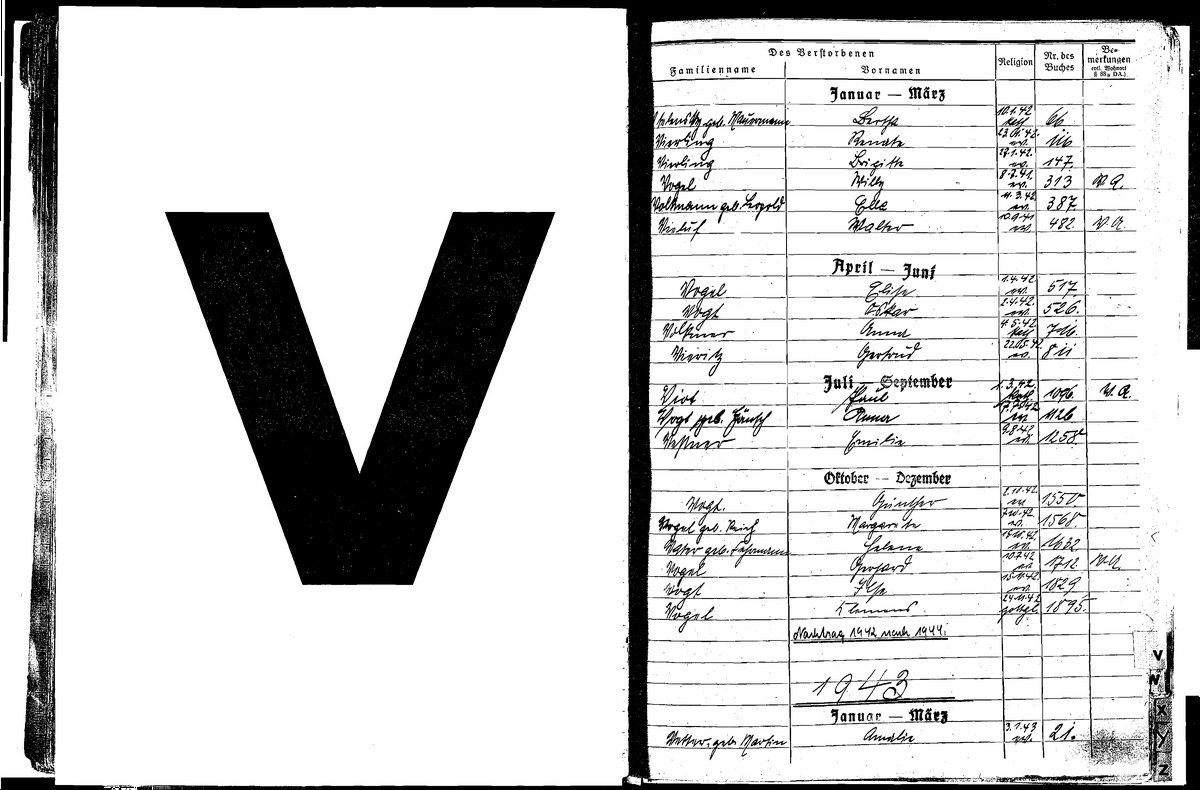 V
Des Verstorbenen
Familienname Vornamen Religion Nr. des Buches Bemerkungen evtl. Wohnort § 88a DA.)
Januar — März
geb. Mauermann Bertha 10.1.42 kath 66
Vierling Renate 23.01.42. ev. 116
Vierling Brigitte 27.1.42. ev. 147.
Vogel Willy 8.7.41. ev. 313 V. A.
Volkmann geb. Leopold Ella 11.3.42. ev. 387
Walter 10.9.41 ev. 482. V. A.
April — Juni
Vogel Elise 1.4.42 ev. 517
Vogt Oskar 2.4.42. ev. 526.
Volkmer Anna 4.5.42. kath 716.
Vieritz Gertrud 22.05.42. ev. 811
Juli — September
Paul 1.3.42. kath 1096. V. A.
Vogt geb. Hänsch Anna 17.7.42 ev 1126
Emilie 9.8.42 ev. 1258.
Oktober — Dezember
Vogt. Günther 2.10.42. ev 1550
Vogel geb. Reich Margarete 7.10.42. ev. 1568.
Vater geb. Fuhrmann Helene 17.10.42. ev. 1632
Vogel Gerhard 10.7.42 ev. 1712 V. A.
Vogt Ilse 15.11.42. ev. 1829
Vogel Klemens 24.11.42 gottgl. 1895.
Nachtrag 1942 nach 1944.
1943
Januar — März
Vetter, geb. Martin Amalie 3.1.43 ev. 21.
V
W
X
Y
Z